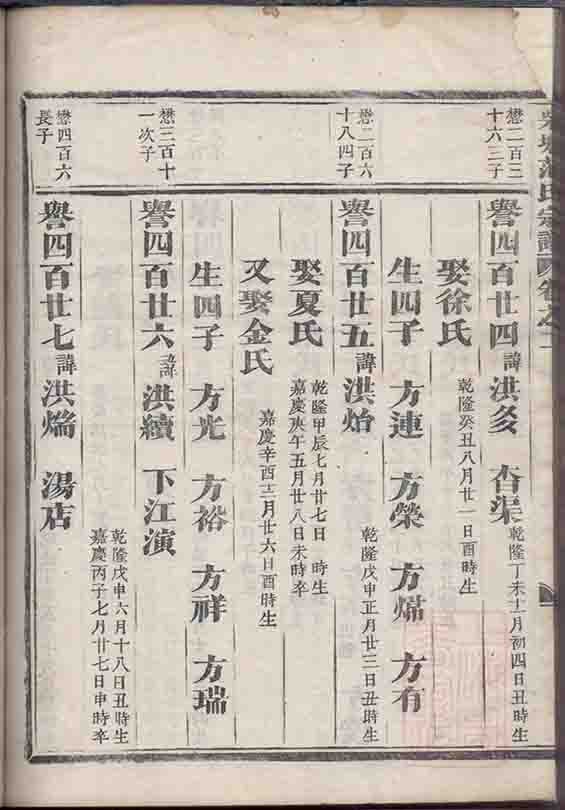 范氏宗譜 卷之二
懋二百三
十六三子
譽四百廿四 諱 洪㚊 杏渠 乾隆丁未十一月初四日丑時生
娶徐氏 乾隆癸丑八月廿一日酉時生
生四子 方連 方榮 方煓 方有
懋二百六
十八四子
譽四百廿五 諱 洪炲 乾隆戊申正月廿三日丑時生
娶夏氏 乾隆甲辰七月廿七日 時生
嘉慶庚午五月廿八日未時卒
又娶金氏 嘉慶辛酉十二月廿六日酉時生
生四子 方光 方裕 方祥 方瑞
懋三百十
一次子
譽四百廿六 諱 洪續 下江演
懋四百六
長子
譽四百廿七 諱 洪煓 湯店 乾隆戊申六月十八日丑時生
嘉慶丙子七月廿七日申時卒